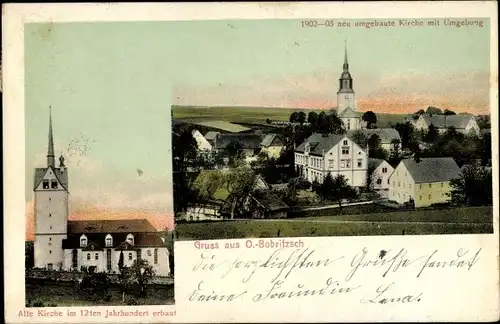 1902-03 neu umgebaute Kirche mit Umgebung
Gruss aus O.-Bobritzsch
die herzlichsten Grüße sendet
deine Freundin Lena.
Alte Kirche im 12ten Jahrhundert erbaut